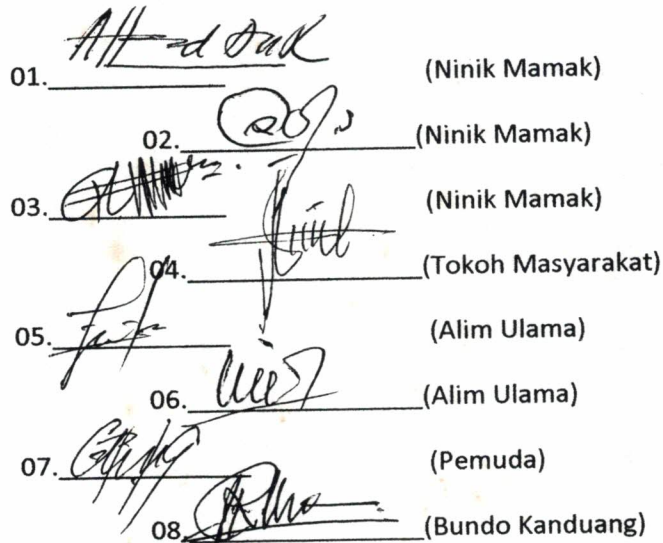 01. (Ninik Mamak)
02. (Ninik Mamak)
03. (Ninik Mamak)
04. (Tokoh Masyarakat)
05. (Alim Ulama)
06. (Alim Ulama)
07. (Pemuda)
08. (Bundo Kanduang)